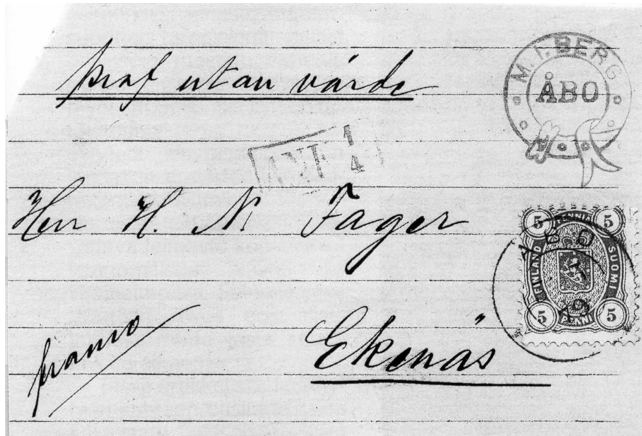 Prof utan värde
M. I. BERG
ÅBO
ANK
1
4
Herr H. N. Fager
5 PENNIÄ 5
FINLAND SUOMI
5 PENNI 5
ÅBO
Ekenäs
franco